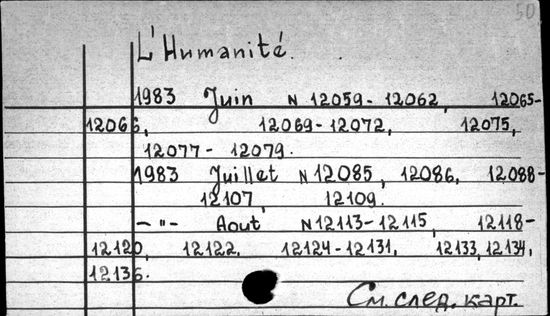 50
L'Humanité.
1983 Juin N 12059-12062, 12065-
12066, 12069-12072, 12075,
12077-12079.
1983 Juillet N 12085, 12086, 12088-
12107, 12109.
-"- Aout N12113-12115, 12118-
12120, 12122, 12124-12131, 12133, 12134,
12136.
См. след. карт.